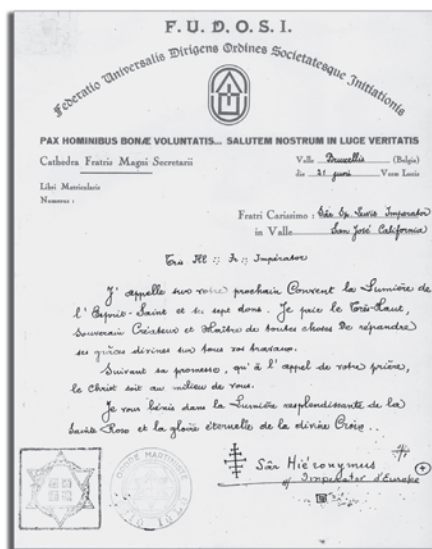 F. U. D. O. S. I.
Federatio Universalis Dirigens Ordines Societatesque Initiationis
PAX HOMINIBUS BONÆ VOLUNTATIS... SALUTEM NOSTRUM IN LUCE VERITATIS
Cathedra Fratris Magni Secretarii
Valle Bruxellis (Belgia)
die 21 juni Veræ Lucis
Libri Matricularis
Numerus :
Fratri Carissimo : Sâr Imperator
in Valle San José California
Très Ill ∴ Fr ∴ Impérator
J'appelle sur votre prochain Convent la Lumière de
l'Esprit-Saint et ses sept dons. Je prie le Très-Haut,
Souverain Créateur et Maître de toutes choses De répandre
ses grâces divines sur tous vos travaux.
Suivant sa promesse, qu'à l'appel de votre prière,
le Christ soit au milieu de vous.
Je vous bénis dans la Lumière resplendissante de la
Sainte Rose et la gloire éternelle de la divine Croix..
Sâr Hiéronymus
Imperator d'Europe
ORDRE MARTINISTE